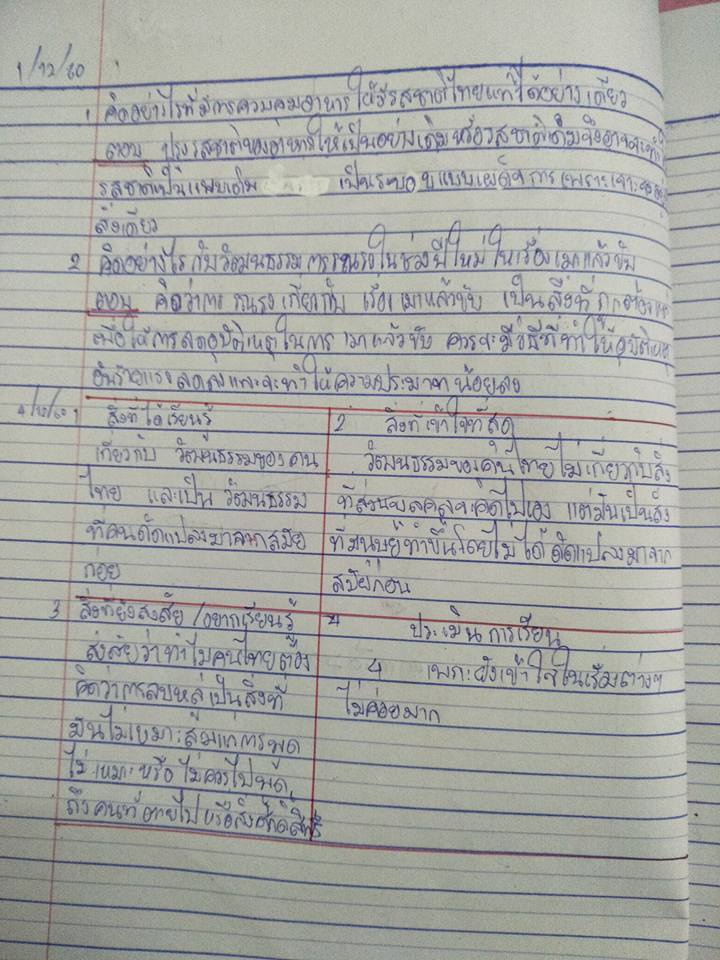 1/12/60
1 คิดอย่างไรที่มีการควบคุมอาหารให้มีรสชาติไทยแท้ได้อย่างเดียว
ตอบ ปรุงรสชาติของอาหารให้เป็นอย่างเดิมหรือรสชาติเดิมจึงอาจจะทำ
รสชาติเป็นแบบเดิม เป็นระบอบแบบเผด็จการเพราะเจาะจง
สิ่งเดียว
2 คิดอย่างไรกับวัฒนธรรมการรณรงในช่วงปีใหม่ในเรื่องเมาแล้วขับ
ตอบ คิดว่าการรณรงเกี่ยวกับ เรื่องเมาแล้วขับ เป็นสิ่งที่ถูกต้อง
เพื่อให้การลดอุบัติเหตุในการ เมาแล้วขับ ควรจะมีวิธีที่ทำให้อุบัติเหตุ
อันร้ายแรงลดลงและจะทำให้ความประมาทน้อยลง
4/12/60
1 สิ่งที่ได้เรียนรู้
เกี่ยวกับ วัฒนธรรมของคน
ไทย และเป็น วัฒนธรรม
ที่คนดัดแปลงมาจากสมัย
ก่อน
2 สิ่งที่เข้าใจที่สุด
วัฒนธรรมของคนไทยไม่เกี่ยวกับสิ่ง
ที่ส่วนบุคคลจะคิดไปเอง แต่มันเป็นสิ่ง
ที่มนุษย์ทำขึ้นโดยไม่ได้ดัดแปลงมาจาก
สมัยก่อน
3 สิ่งที่ยังสงสัย /อยากเรียนรู้
สงสัยว่าทำไมคนไทยต้อง
คิดว่าการลบหลู่เป็นสิ่งที่
มันไม่เหมาะสมแก่การพูด
ไม่เหมาะหรือไม่ควรไปพูด
ถึงคนที่ตายไปหรือสิ่งศักดิ์สิทธิ์
4 ประเมินการเรียน
4 เพราะยังเข้าใจในเรื่องต่างๆ
ไม่ค่อยมาก